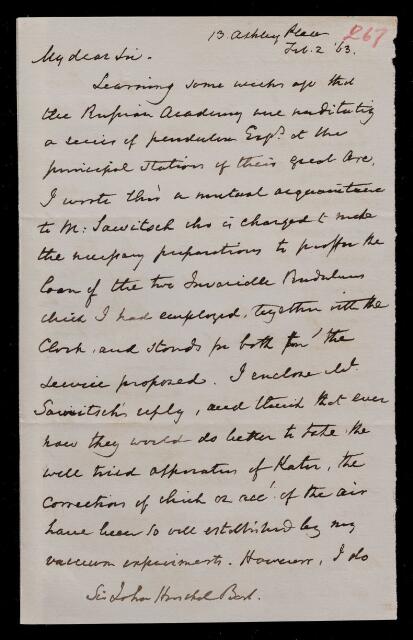 267
13 Ashley Place
Feb. 2 '63.
My dear Sir.
Learning some weeks ago that
the Russian Academy were meditating
a series of pendulum Expts. at the
principal stations of their great Arc,
I wrote thro' a mutual acquaintance
to M: Sawitsch who is charged to make
the necessary preparations to proffer the
loan of the two Invariable Pendulums
which I had employed, together with the
Clock, and stands for both for the
service proposed. I enclose M.
Sawitsch's reply, and think that even
now they would do better to take the
well tried apparatus of Kater, the
corrections of which on acct. of the air
have been so well established by my
vacuum experiments. However, I do
Sir John Herschel Bart.